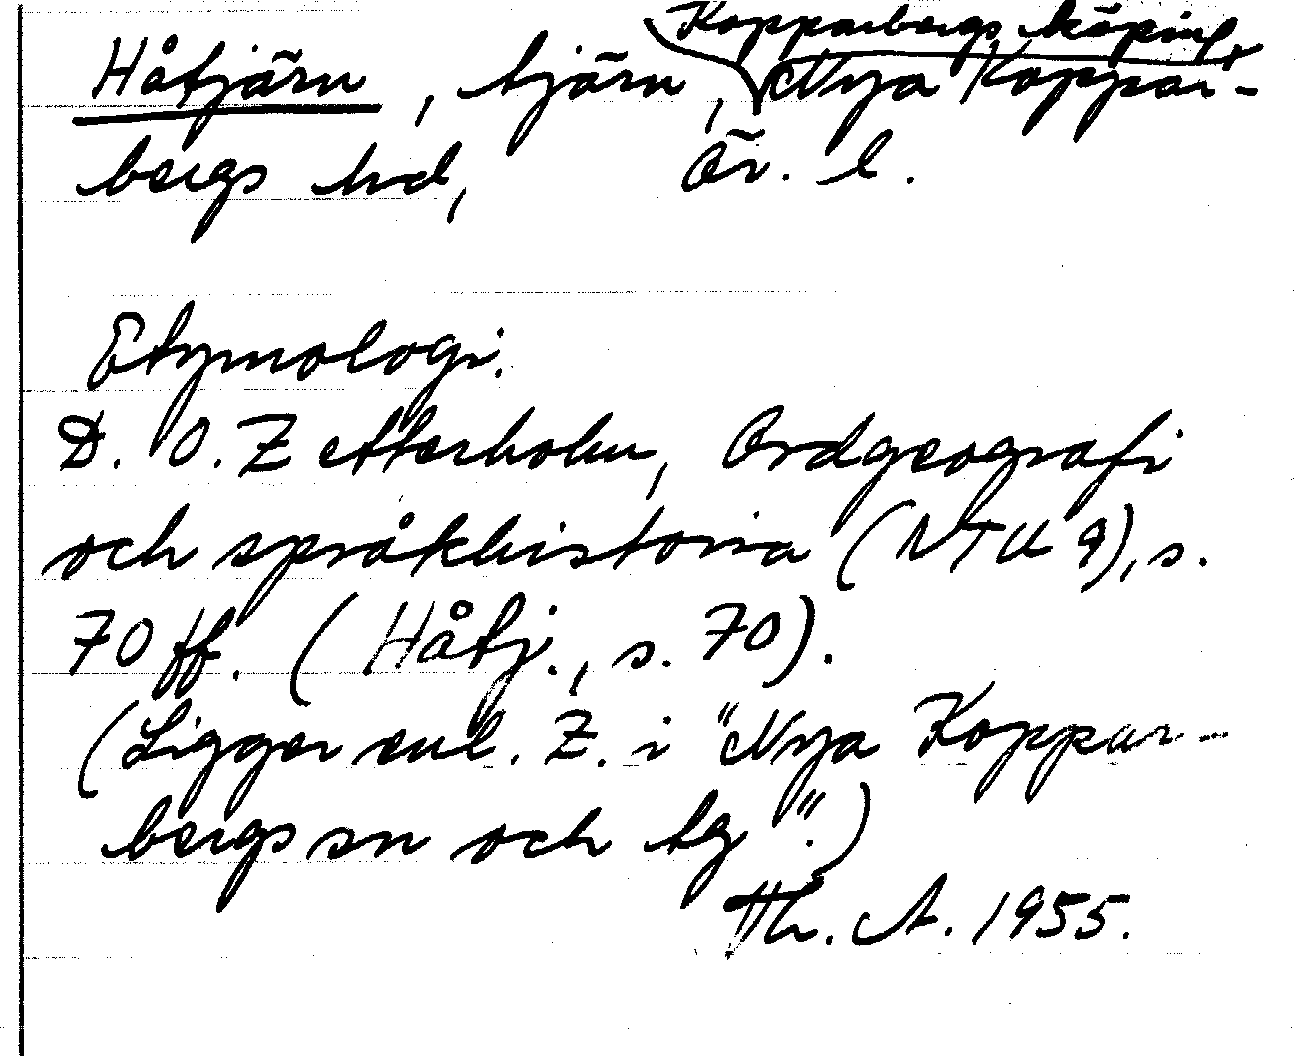 Kopparbergs köping,
Håtjärn, tjärn, Nya Koppar-
bergs hd, Ör. l.
Etymologi.
D. O. Zetterholm, Ordgeografi
och språkhistoria (NTU 9), s.
70 ff. (Håtj., s. 70).
(Ligger enl. Z. i "Nya Koppar-
bergs sn och tg".)
Th. A. 1955.